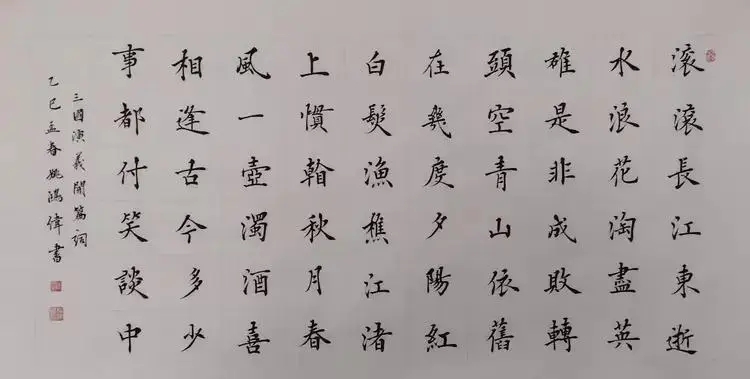 滚滾長江東逝
水浪花淘盡英
雄是非成敗轉
頭空青山依舊
在幾度夕陽紅
白髮漁樵江渚
上慣翰秋月春
風一壺濁酒喜
相逢古今多少
事都付笑談中
三國演義開篇詞
乙巳孟春姚鴻偉書